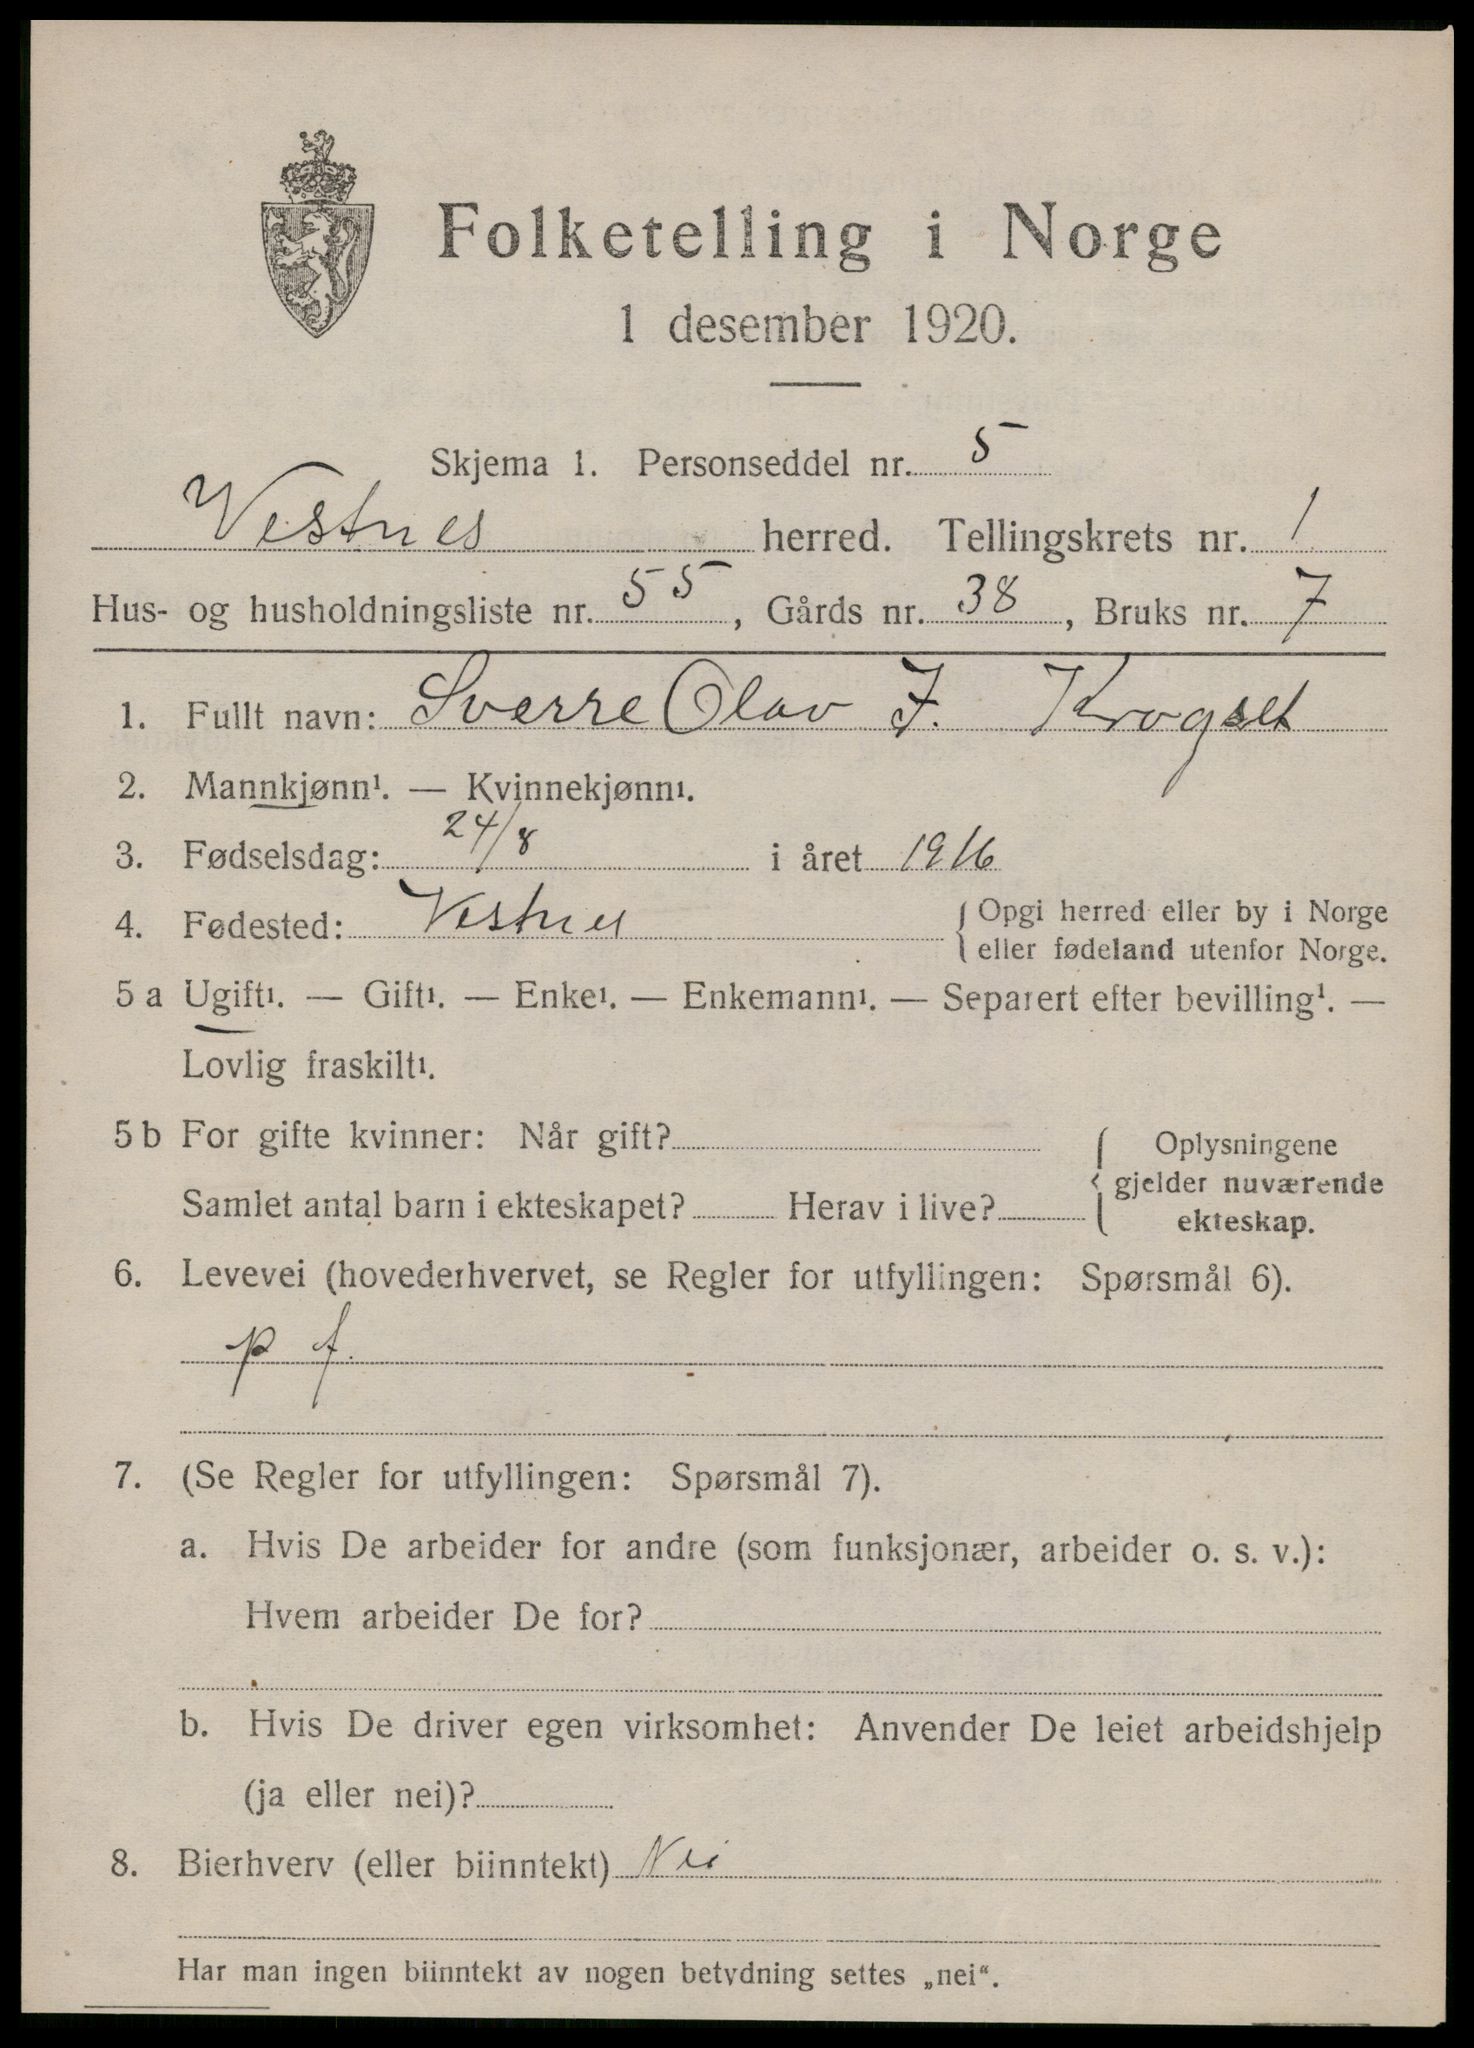 Folketelling i Norge
1 desember 1920.
Skjema 1. Personseddel nr. 5
Vestnes herred. Tellingskrets nr. 1
Hus- og husholdningsliste nr. 55, Gårds nr. 38, Bruks nr. 7
1. Fullt navn: Sverre Olav J. Krogset
2. Mannkjønn¹. — Kvinnekjønn¹.
3. Fødselsdag: 24/8 i året 1916
4. Fødested: Vestnes { Opgi herred eller by i Norge
eller fødeland utenfor Norge.
5 a Ugift¹. — Gift¹. — Enke¹. — Enkemann¹. — Separert efter bevilling¹. —
Lovlig fraskilt¹.
5 b For gifte kvinner: Når gift? { Oplysningene
gjelder nuværende
Samlet antal barn i ekteskapet? Herav i live?
ekteskap.
6. Levevei (hovederhvervet, se Regler for utfyllingen: Spørsmål 6).
p f.
7. (Se Regler for utfyllingen: Spørsmål 7).
a. Hvis De arbeider for andre (som funksjonær, arbeider o. s. v.):
Hvem arbeider De for?
b. Hvis De driver egen virksomhet: Anvender De leiet arbeidshjelp
(ja eller nei)?
8. Bierhverv (eller biinntekt) Nei
Har man ingen biinntekt av nogen betydning settes „nei“.